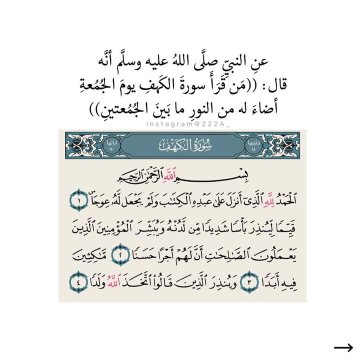 عنِ النبيِّ صلَّى اللهُ عليه وسلَّم أنَّه
قال: ((مَن قَرَأَ سورةَ الكَهفِ يومَ الجُمُعةِ
أضاءَ له من النورِ ما بَينَ الجُمُعتينِ))
Instagram@222A_
سُورَةُ الكَهْفِ
بِسْمِ اللَّهِ الرَّحْمَٰنِ الرَّحِيمِ
الْحَمْدُ لِلَّهِ الَّذِي أَنزَلَ عَلَىٰ عَبْدِهِ الْكِتَابَ وَلَمْ يَجْعَل لَّهُ عِوَجَا ۜ ١
قَيِّمًا لِّيُنذِرَ بَأْسًا شَدِيدًا مِّن لَّدُنْهُ وَيُبَشِّرَ الْمُؤْمِنِينَ الَّذِينَ
يَعْمَلُونَ الصَّالِحَاتِ أَنَّ لَهُمْ أَجْرًا حَسَنًا ٢ مَّاكِثِينَ
فِيهِ أَبَدًا ٣ وَيُنذِرَ الَّذِينَ قَالُوا اتَّخَذَ اللَّهُ وَلَدًا ٤
→